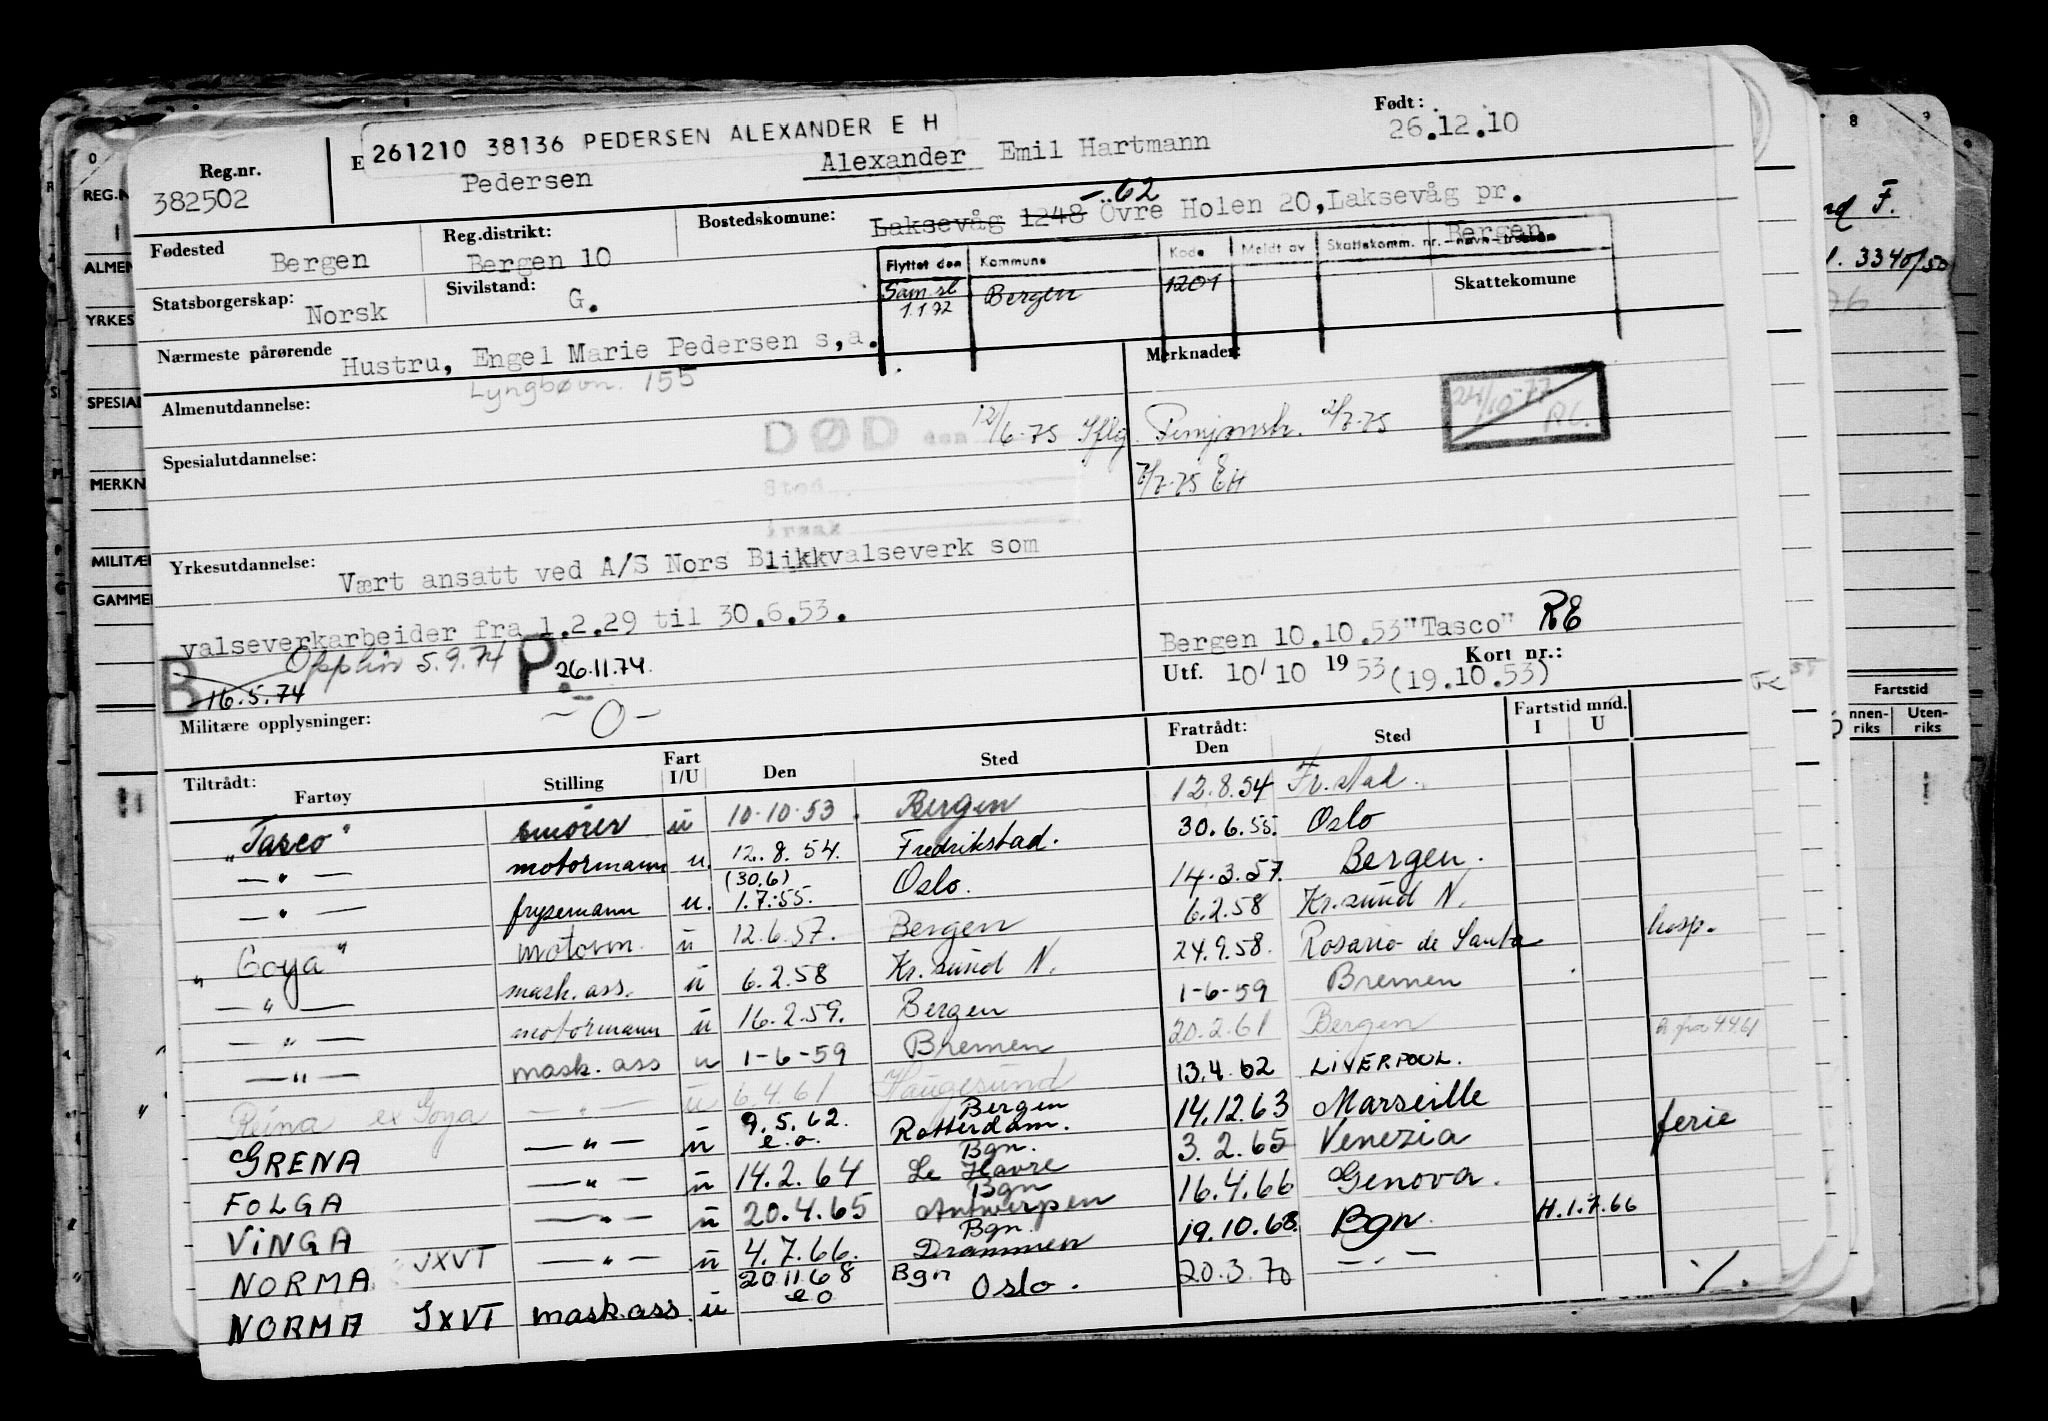 Reg.nr.
382502
E 261210 38136 PEDERSEN ALEXANDER E H
Pedersen Alexander Emil Hartmann
Født:
26.12.10
Fødested Bergen
Reg.distrikt: Bergen 10
Bostedskomune: Laksevåg 1248 -62 Övre Holen 20, Laksevåg pr. Bergen
Statsborgerskap: Norsk
Sivilstand: G.
Flyttet den Kommune Kode Meldt av Skattekomm. nr. - navn -
Sam.sl 1.1.72 Bergen 1201
Skattekomune
Nærmeste pårørende Hustru, Engel Marie Pedersen s,a.
Lyngbøvn. 155
Merknader:
Almenutdannelse:
DØD den 12/6-75 Iflg. 2/7-75
24/10-77
RL.
Spesialutdannelse:
Sted
7/7-75 EH
årsak
Yrkesutdannelse: Vært ansatt ved A/S Nors Blikkvalseverk som
valseverkarbeider fra 1.2.29 til 30.6.53.
Bergen 10.10.53 "Tasco" RE
B 16.5.74 5.9.74 P. 26.11.74.
Utf. 10/10 1953 (19.10.53) Kort nr.:
Militære opplysninger: -0-
Tiltrådt: Fartøy Stilling Fart I/U Den Sted Fratrådt: Den Sted Fartstid mnd. I U
"Tasco" smører u 10.10.53. Bergen 12.8.54 Fr.stad.
— " — motormann u. 12.8.54. Fredrikstad. 30.6.55. Oslo
— " — frysemann u. (30.6) 1.7.55. Oslo. 14.3.57. Bergen.
"Goya" motorm. u 12.6.57. Bergen 6.2.58 Kr.sund N.
— " — mask.ass. u 6.2.58 Kr.sund N. 24.9.58. Rosario de Santa hosp.
— " — motormann u 16.2.59. Bergen 1-6-59 Bremen
— " — mask.ass u 1-6-59 Bremen 20.2.61 Bergen
Reina ex Goya — " — u 6.4.61 Haugesund 13.4.62 LIVERPOOL.
GRENA — " — u 9.5.62. e.o. Bergen Rotterdam. 14.12.63 Marseille
FOLGA — " — u 14.2.64 Bgn. Le Havre 3.2.65 Venezia ferie
VINGA — " — u 20.4.65 Bgn Antwerpen 16.4.66 Genova.
NORMA JXVT — " — u 4.7.66. Bgn. Drammen 19.10.68. Bgn. H.1.7.66
NORMA JXVT mask.ass. u 20.11.68 e o Bgn Oslo. 20.3.70 — " — ⁒
REG.N
ALMEN
YRKES
SPESIAL
MERKN
MILITÆR
GAMMEL
3340/50
Fartstid
Innen-riks Uten-riks